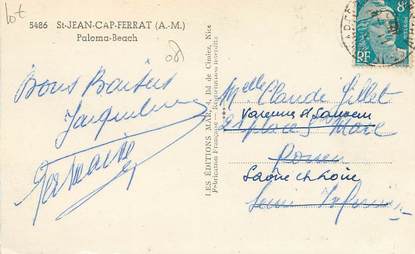 lot
5486 St-JEAN-CAP-FERRAT (A.-M.)
Paloma-Beach
Bons Baisers
Jacqueline
Germaine
LES ÉDITIONS MAR, Bd de Cimiez, Nice
Fabrication Française - Reproduction interdite
8F
RF
Melle Claude Gillet
Varennes St Sauveur
Place St Marc
Rouen
Saône et Loire
Seine Inférieure